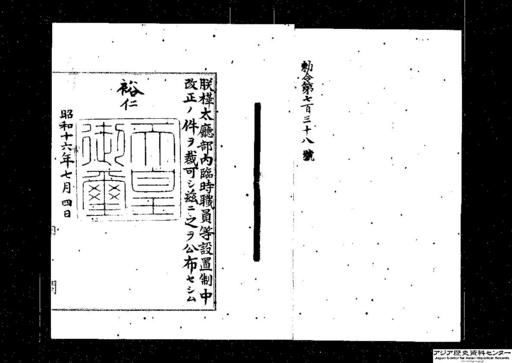 勅令第七百三十八號
朕樺太廳部內臨時職員等設置制中
改正ノ件ヲ裁可シ茲ニ之ヲ公布セシム
裕仁
天皇
御璽
昭和十六年七月四日
アジア歴史資料センター
Japan Center for Asian Historical Records